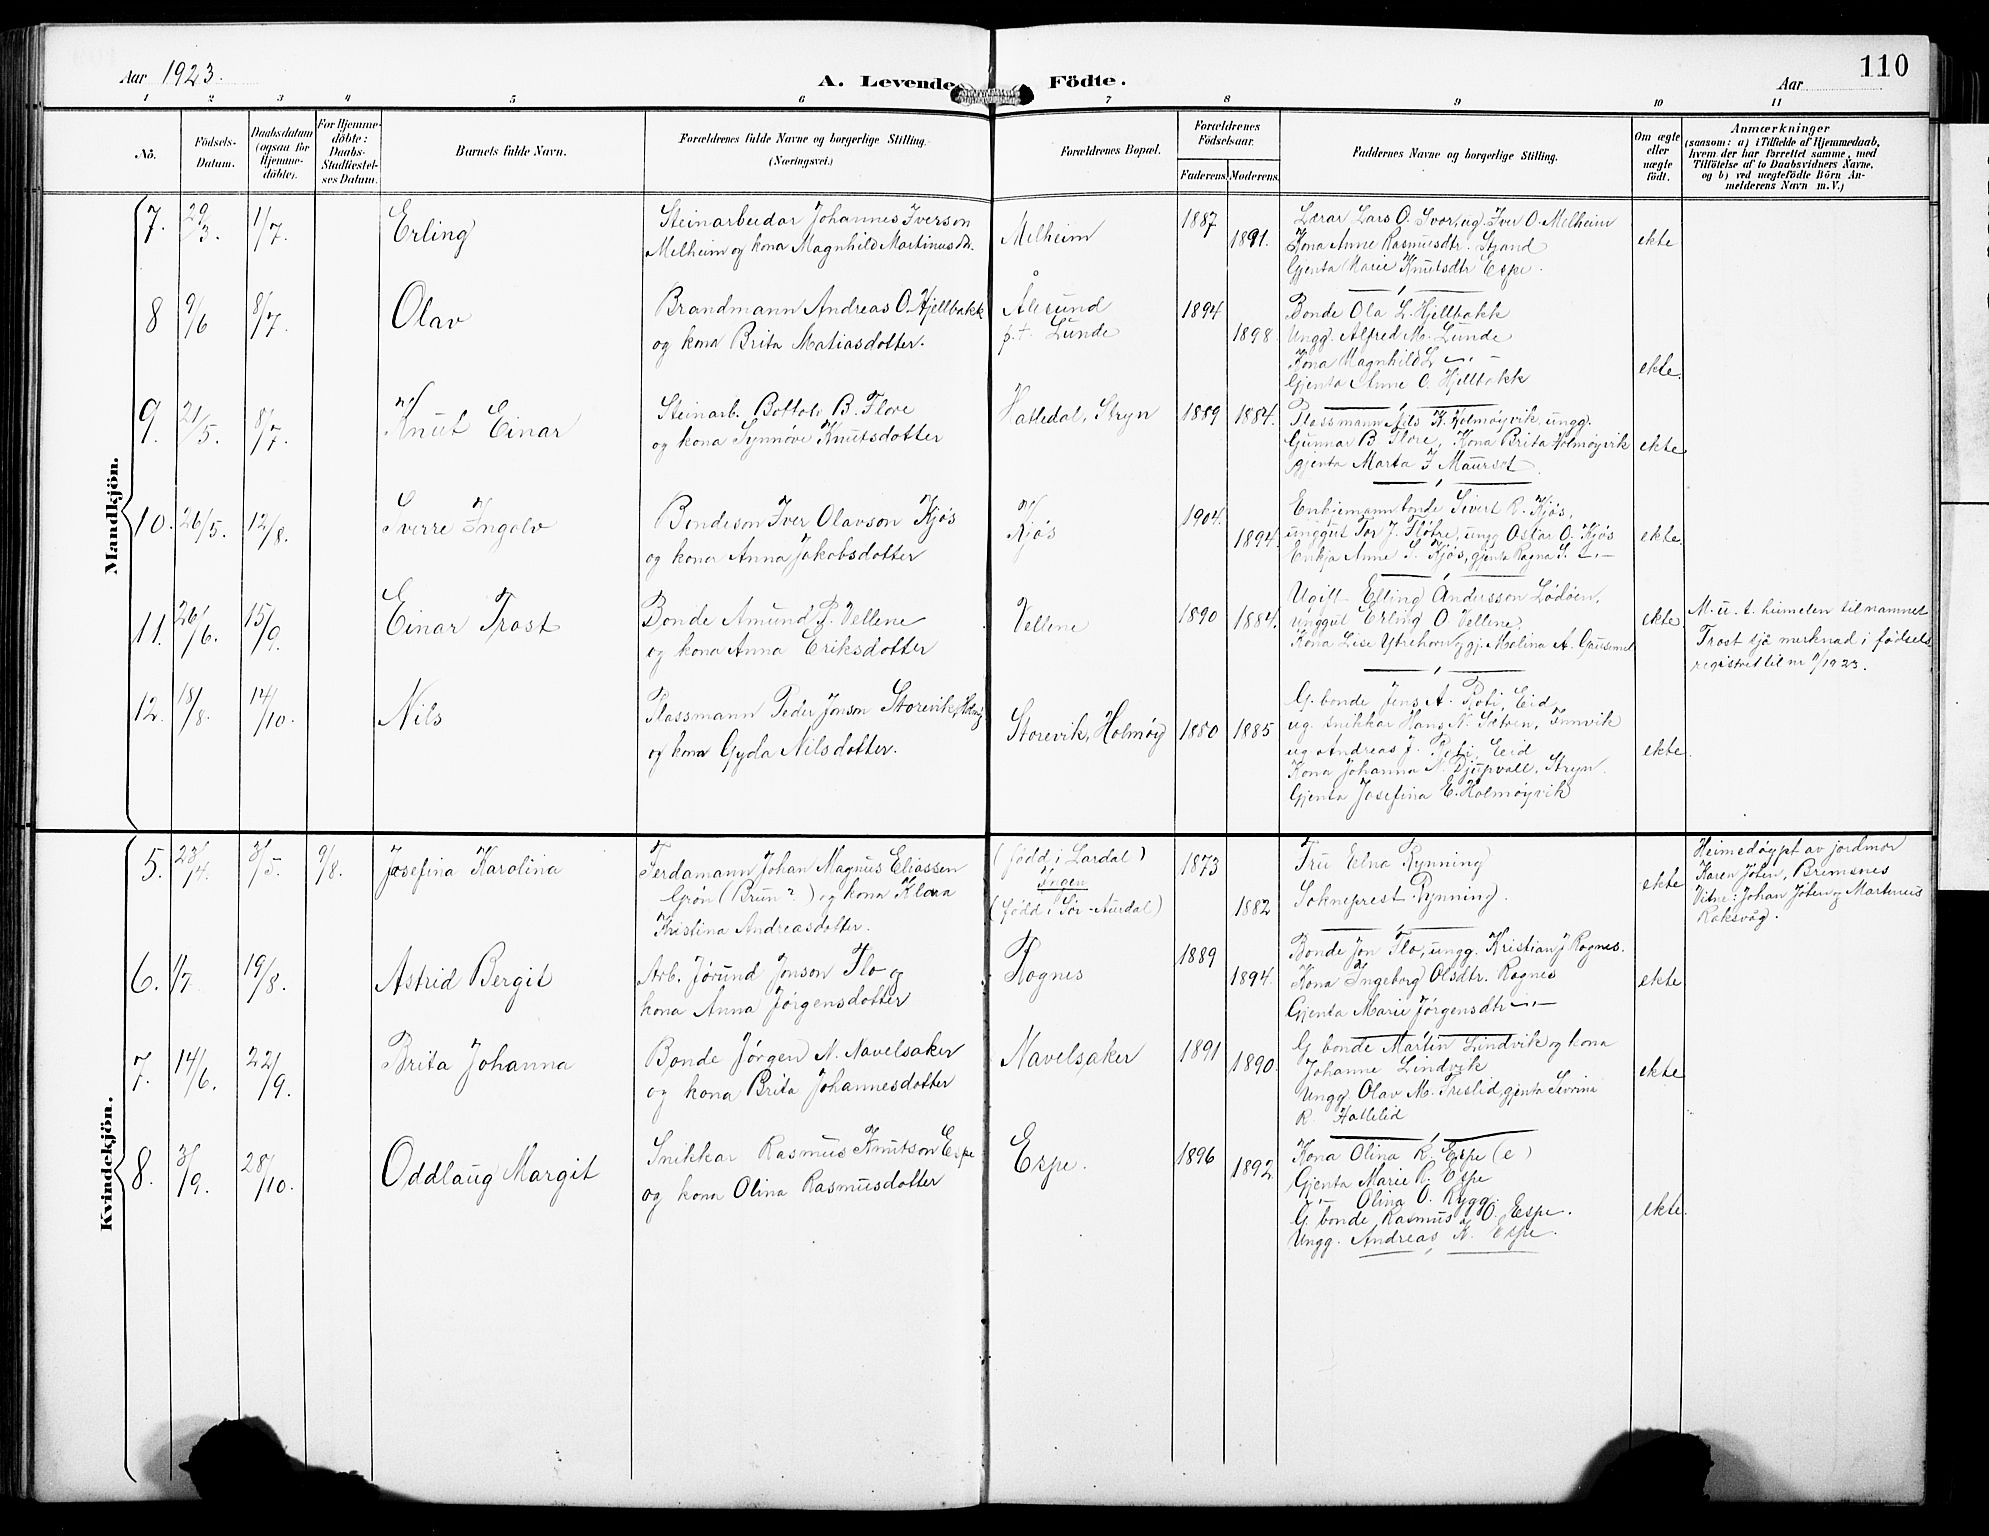 Aar 1923.
A. Levende Födte.
Aar
110
1 2 3 4 5 6 7 8 9 10 11
No.
Födsels-Datum.
Daabsdatum (ogsaa for Hjemme-döbte).
For Hjemme-döbte: Daabs-Stadfæstel-ses Datum.
Barnets fulde Navn.
Forældrenes fulde Navne og borgerlige Stilling.
(Næringsvei.)
Forældrenes Bopæl.
Forældrenes Födselsaar.
Faderens. Moderens.
Faddernes Navne og borgerlige Stilling.
Om ægte eller uægte födt.
Anmærkninger
(saasom: a) i Tilfælde af Hjemmedaab,
hvem der har forrettet samme, med
Tilföielse af to Daabsvidners Navne,
og b) ved uægtefödte Börn An-
melderens Navn m. V.)
Mandkjön.
7. 29/3. 1/7. Erling
Steinarbeidar Johannes Iverson
Melheim og kona Magnhild Martinusdtr.
Melheim
1887 1891.
Lærar Lars O. Svor, ug. Iver O. Melheim
Kona Anne Rasmusdtr.
Gjenta Marie Knutsdtr Espe.
ekte
8 9/6 8/7. Olav
Brandmann Andreas O. Hjellbakk
og kona Brita Matiasdotter.
Ålesund
p.t. Lunde
1894 1898.
Bonde Ola L. Hjellbakk
Ungg. Alfred M. Lunde
Kona Magnhild L —"—
Gjenta Anne O. Hjellbakk
ekte.
9. 21/5. 8/7. Knut Einar
Steinarb. Bottolv B. Flore
og kona Synnøve Knutsdotter
Hatledal, Stryn
1889 1884.
Plassmann Nils K. Holmøyvik, ungg.
Gunnar B. Flore, Kona Brita Holmøyvik
gjenta Marta I Maurset
ekte
10. 26/5. 12/8. Sverre Ingolv
Bondeson Iver Olavson Kjøs
og kona Anna Jakobsdotter
Kjøs
1904. 1894.
Enkjemann bonde Sivert R. Kjøs,
unggut Tor J. Fløtre, ungg Oskar O. Kjøs
Enkja Anne S. Kjøs, gjenta Ragna S. —"—
ekte.
11. 26/6. 15/9. Einar Trost
Bonde Amund P. Vellene
og kona Anna Eriksdotter
Vellene
1890 1884.
Ugift Elling Andersson Lødøen,
unggut Erling O Vellene,
Kona Lise Ytrehorn, gj. Molina A.
ekte.
M.u.t. himelen til namnet
Trost sjå merknad i fødsels
registret til nr 9/1923.
12. 18/8. 14/10. Nils
Plassmann Peder Jonson Storevik,
og kona Gyda Nilsdotter.
Storevik, Holmøy
1880 1885
G. bonde Jens A. Roti, Eid
ug. snikkar Hans N. Sætren,
ug. Andreas J. Roti Eid
Kona Johanna N. Djupvall, Stryn.
Gjenta Josefina E. Holmøyvik
ekte.
Kvindekjön.
5. 23/4. 3/5. 9/8. Josefina Karolina
Ferdamann Johan Magnus Eliassen
Grøn (Brun?) og kona Klara
Kristina Andreasdotter.
(født i Lardal)
Ingen
(født i Sør-Aurdal)
1873 1882
Fru Elna Rynning
Sokneprest Rynning.
ekte
Heimedøypt av jordmor
Karen Jøten, Bremsnes
Vitne: Johan Jøten og Martinus
Raksvåg.
6. 1/7 19/8. Astrid Bergit
Arb. Jørund Jonson Flo og
kona Anna Jørgensdotter
Rognes
1889 1894.
Bonde Jon Flo, ungg. Kristian J Rognes.
Kona Ingeborg Olsdtr. Rognes
Gjenta Marie Jørgensdtr —"—
ekte
7. 14/6. 22/9. Brita Johanna
Bonde Jørgen N. Navelsaker
og kona Brita Johannesdotter
Navelsaker
1891 1890.
G. bonde Martin Lindvik og kona
Johanne Lindvik
Ungg Olav M. Treslid, gjenta Severine
R. Hatlelid
ekte
8. 3/9. 28/10. Oddlaug Margit
Snikkar Rasmus Knutson Espe
og kona Olina Rasmusdotter
Espe.
1896 1892
Kona Olina R. Espe (e)
Gjenta Marie R. Espe
—"— Olina O. Rygg.
G. bonde Rasmus O. Espe.
Ungg. Andreas K. Espe.
ekte.